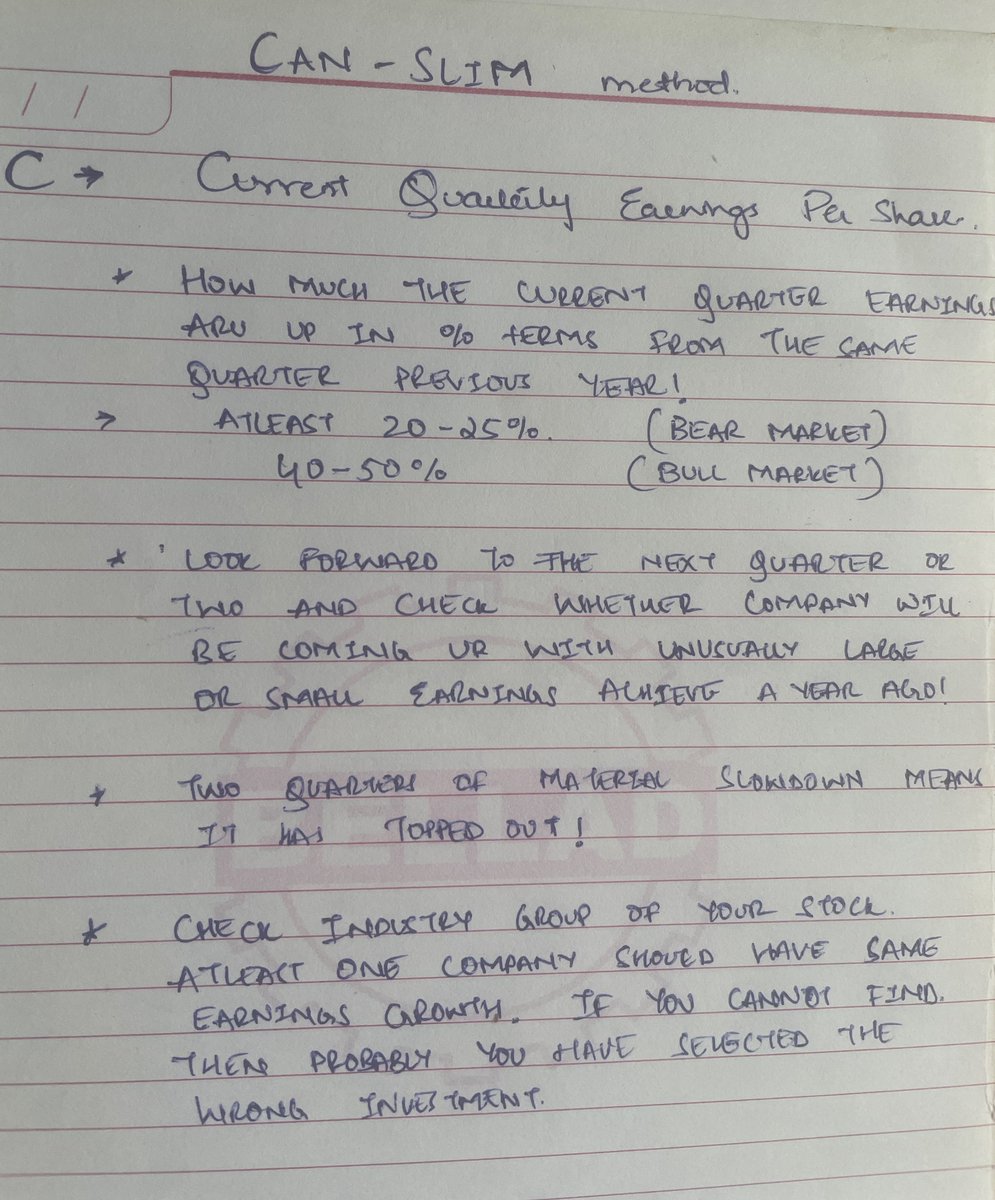 CAN - SLIM method.
/ /
C → Current Quarterly Earnings Per Share.
* HOW MUCH THE CURRENT QUARTER EARNINGS
ARE UP IN % TERMS FROM THE SAME
QUARTER PREVIOUS YEAR!
→ ATLEAST 20-25%. (BEAR MARKET)
40-50% (BULL MARKET)
* LOOK FORWARD TO THE NEXT QUARTER OR
TWO AND CHECK WHETHER COMPANY WILL
BE COMING UP WITH UNUSUALLY LARGE
OR SMALL EARNINGS ACHIEVE A YEAR AGO!
* TWO QUARTERS OF MATERIAL SLOWDOWN MEANS
IT HAS TOPPED OUT!
BELLAD
* CHECK INDUSTRY GROUP OF YOUR STOCK.
ATLEAST ONE COMPANY SHOULD HAVE SAME
EARNINGS GROWTH. IF YOU CANNOT FIND.
THEN PROBABLY YOU HAVE SELECTED THE
WRONG INVESTMENT.